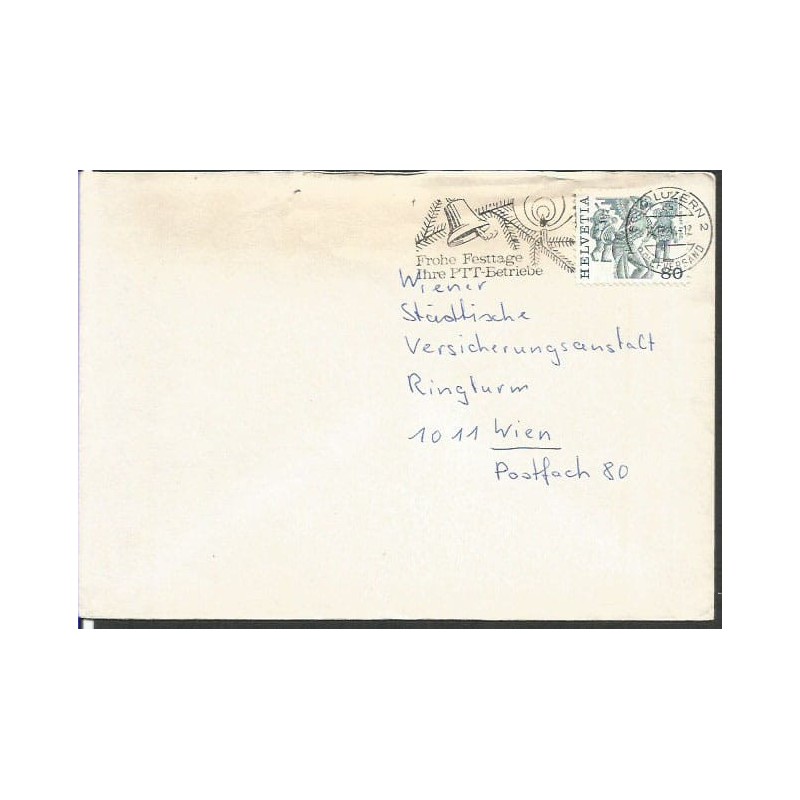 Frohe Festtage
Ihre PTT-Betriebe
HELVETIA
80
LUZERN 2
Wiener
Städtische
Versicherungsanstalt
Ringturm
1011 Wien
Postfach 80